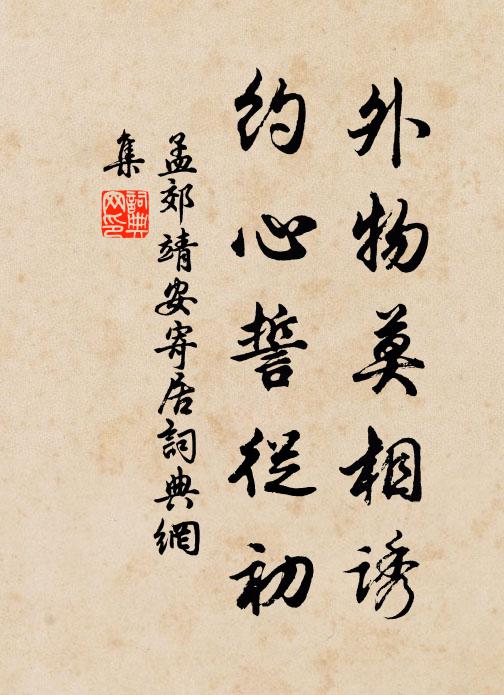 外物莫相誘
約心誓從初
孟郊靖安寄居詞典網
集
詞典
网印